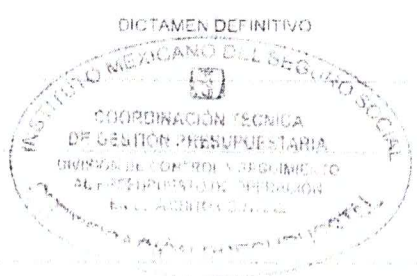 DICTAMEN DEFINITIVO
INSTITUTO MEXICANO DEL SEGURO SOCIAL
COORDINACIÓN TÉCNICA
DE GESTIÓN PRESUPUESTARIA
DIVISIÓN DE CONTROL Y SEGUIMIENTO
AL PRESUPUESTO DE OPERACIÓN
EN EL ÁMBITO